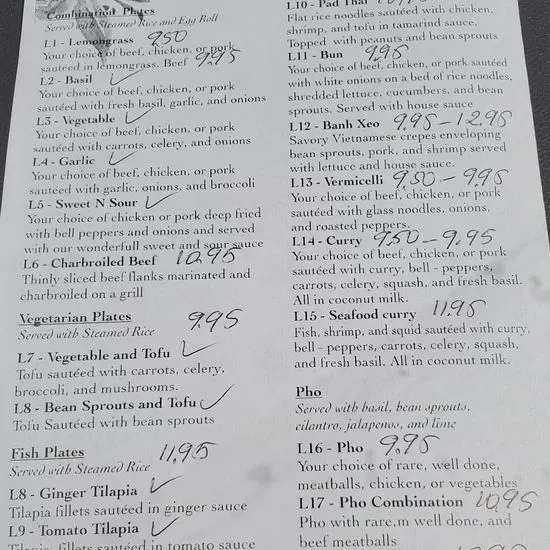 Combination Plates
Served with Steamed Rice and Egg Roll
L1 - Lemongrass 9.50
Your choice of beef, chicken, or pork
sautéed in lemongrass. Beef 9.95
L2 - Basil ✓
Your choice of beef, chicken, or pork
sautéed with fresh basil, garlic, and onions
L3 - Vegetable ✓
Your choice of beef, chicken, or pork
sautéed with carrots, celery, and onions
L4 - Garlic ✓
Your choice of beef, chicken, or pork
sautéed with garlic, onions, and broccoli
L5 - Sweet N Sour ✓
Your choice of chicken or pork deep fried
with bell peppers and onions and served
with our wonderfull sweet and sour sauce
L6 - Charbroiled Beef 10.95
Thinly sliced beef flanks marinated and
charbroiled on a grill
Vegetarian Plates 9.95
Served with Steamed Rice
L7 - Vegetable and Tofu ✓
Tofu sautéed with carrots, celery,
broccoli, and mushrooms.
L8 - Bean Sprouts and Tofu ✓
Tofu Sautéed with bean sprouts
Fish Plates 11.95
Served with Steamed Rice
L8 - Ginger Tilapia ✓
Tilapia fillets sautéed in ginger sauce
L9 - Tomato Tilapia ✓
Tilapia fillets sautéed in tomato sauce
L10 - Pad Thai
Flat rice noodles sautéed with chicken,
shrimp, and tofu in tamarind sauce.
Topped with peanuts and bean sprouts
L11 - Bun 9.95
Your choice of beef, chicken, or pork sautéed
with white onions on a bed of rice noodles,
shredded lettuce, cucumbers, and bean
sprouts. Served with house sauce
L12 - Banh Xeo 9.95 - 12.95
Savory Vietnamese crepes enveloping
bean sprouts, pork, and shrimp served
with lettuce and house sauce.
L13 - Vermicelli 9.50 - 9.95
Your choice of beef, chicken, or pork
sautéed with glass noodles, onions,
and roasted peppers.
L14 - Curry 9.50 - 9.95
Your choice of beef, chicken, or pork
sautéed with curry, bell - peppers,
carrots, celery, squash, and fresh basil.
All in coconut milk.
L15 - Seafood curry 11.95
Fish, shrimp, and squid sautéed with curry,
bell - peppers, carrots, celery, squash,
and fresh basil. All in coconut milk.
Pho
Served with basil, bean sprouts,
cilantro, jalapenos, and lime
L16 - Pho 9.95
Your choice of rare, well done,
meatballs, chicken, or vegetables
L17 - Pho Combination 10.95
Pho with rare,m well done, and
beef meatballs